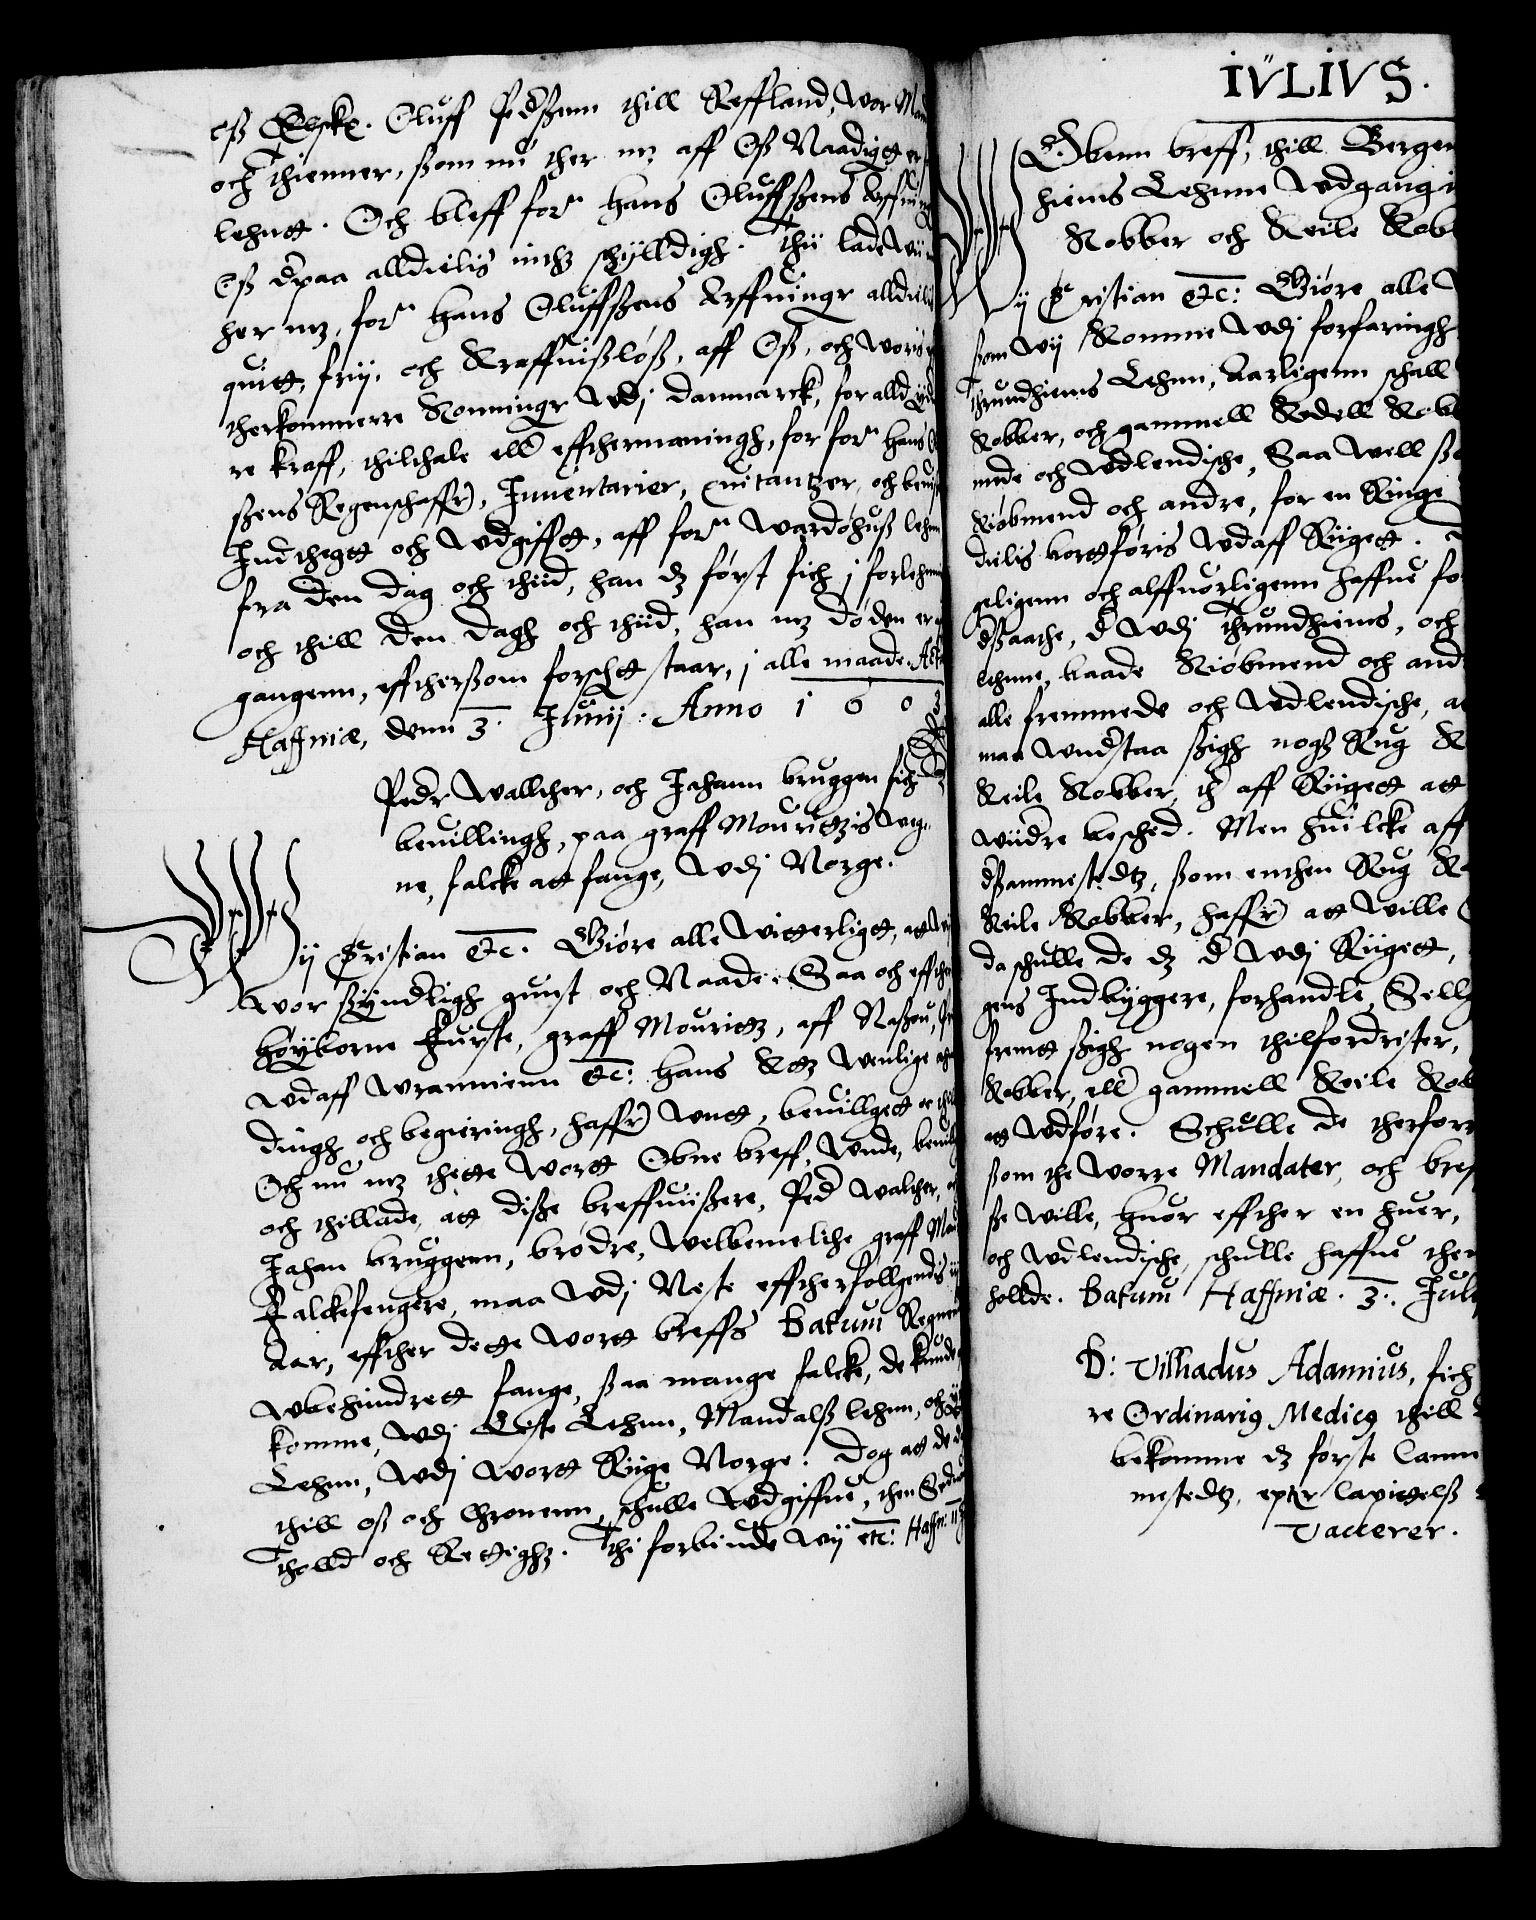 oß Elskl. Oluff Pedßenn thill Reffland, Wor Man
och thienner, ßom nu ther mz aff Oß Naadigt er
lehntt. Och bleff for.ne Hans Oluffßens Arffuing
Oß dpaa alldielis intz schylldigh. Thii lade Wii
her mz, for.ne Hans Oluffßens Arffuingr alldielis
quitt, frij, och Kraffuißløß, aff Oß, och woris
therkommerre Konningr Wdj Danmarck, for alld yder
re kraff, thilthale elld effthermaningh, for for.ne Hans
ßens Regenschaffr, Inuentarier, Quitantzer, och beuiß
Indthegtt och Wdgifftt, aff for.ne Wardøhuß lehn
fra den dag och thiid, han dz først fich j forlehning
och thill den dagh och thiid, han mz døden er
gangenn, efftherßom forschtt staar, j alle maade. Act
Haffniæ, denn 3. Junij. Anno 1 6 0 3
Pedr Wallther, och Jahann bruggen fich
beuillingh, paa graff Mouritzis weg.
ne, falcke att fange, Wdj Norge.
Wij Cristian etc: Giøre alle Witterligtt, att Wi
Aff Wor ßynderligh gunst och Naade. Saa och effther
Høyborne Furste, graff Mouritz, aff Naßou,
Wdaff Wrannienn etc: Hans Ktz Wenlige
dingh och begieringh, haffr Wntt, beuillgett oc
Och nu mz thette Wortt Obne breff, Wnde, beuil
och thillade, att diße breffuiißere, Ped Walther,
Jahan bruggenn, brødre, Welbemelthe graff Mou
Falckefengere, maa Wdj Neste efftherføllgendis
Aar, effther dette Wortt breffs Datum Regnen
Wbehindrett fange, ßaa mange falcke, de kunde
komme, Wdj Liste Lehnn, Mandalß lehnn, och
Lehnn, Wdj Wortt Riige Norge. Dog att de
thill oß och Chronenn, schulle Wdgiffue, then Sed
Tholld och Rettighz. Thi forbiude Wij etc: Haffn: 11
IVLIVS.
Obenn breff, thill Bergen
hiems Lehnne Wdgang
Kobber och Keile Kob
Wij Cristian etc: Giøre alle
ßom Wij Komme Wdj forfaringh
Thrundhiems Lehnn, Aarligenn schall
Kobber, och gammell Kedell Kobb
mede och Wdlendische, Saa Well ßo
Kiøbmend och andre, for en Ringe
dielis bortføris Wdaff Riigett.
geligenn och alffuorligenn haffue fo
dßaache, d Wdj Thrundhiems, och
lehnne, baade Kiøbmend och and
alle fremmede och Wdlendische, a
maa Wndstaa ßigh nogz Rug K
Keile Kobber, th aff Riigett att
Wiidre beschd. Men huilcke aff
dßammestedtz, ßom enthen Rug K
Keile Kobber, haffr att Wille
da schulle de dz d Wdj Riigett,
gens Indbyggere, forhandle, Selle
fremtt ßigh nogen thilfordrister,
Kobber, elld gammell Keile Kob
att Wdføre. Schulle de therfor
ßom the Worre Mandater, och breff
ße Wille, huor effther en huer,
och Wdlendische, schulle haffue them
hollde. Datum Haffniæ. 3. Julij
D: Vilhadus Adamius, fich
re Ordinarig Medicg thill
bekomme dz første Cann
mestedtz, epter Capittelß
Vacerer.